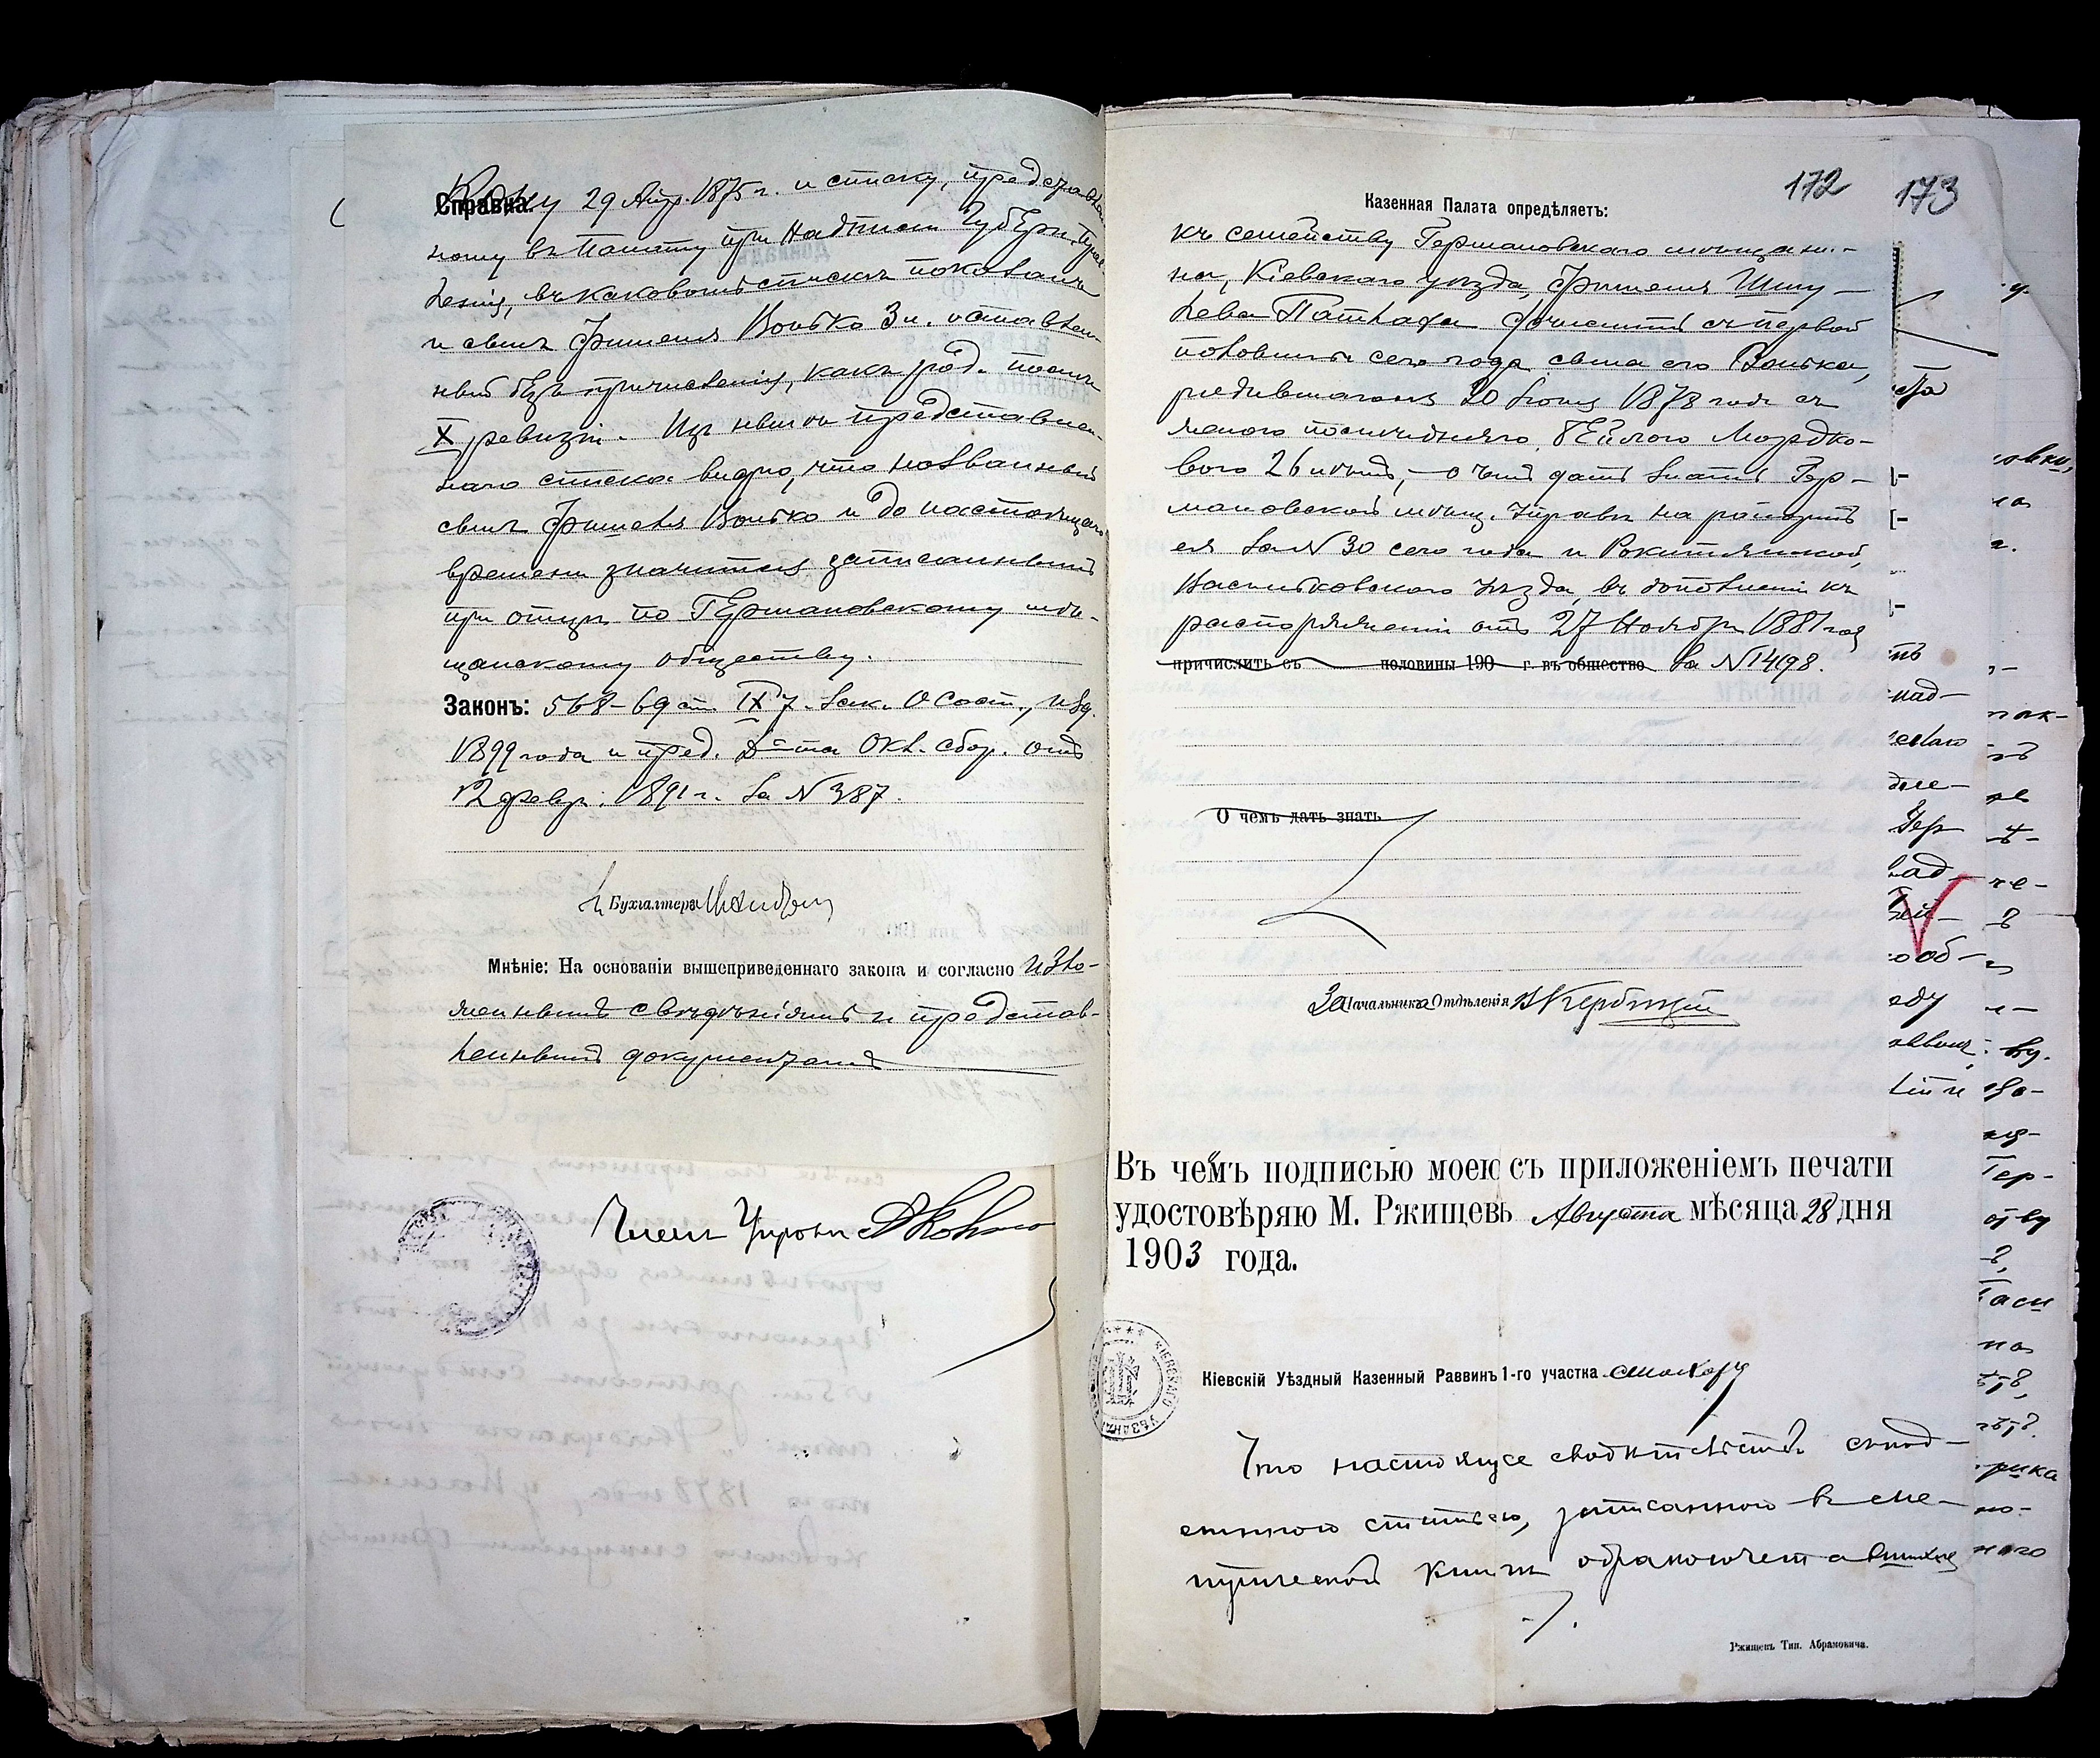 Справка:
29 Апр. 1875 г. и списку, представлен-
ному въ Палату при надписи Губерн. Прав-
ленія, въ каковомъ списке показанъ
и сынъ Фишеля Волько 3 л. оставлен-
ный безъ причисленія, какъ род. после
X ревизіи. Изъ нынѣ представлен-
наго списка видно, что названный
сынъ Фишеля Волько и до настоящаго
времени значится записаннымъ
при отцѣ по Германовскому мѣ-
щанскому обществу.
Законъ: 568-69 ст. IX т. Зак. О Сост., изд.
1899 года и пред. Д-та Окл. сбор. отъ
12 февр. 1891 г. за N 387.
Бухгалтера
Мнѣніе: На основаніи вышеприведеннаго закона и согласно изло-
женнымъ свѣдѣніямъ и представ-
леннымъ документамъ
Членъ Управы
172
173
Казенная Палата опредѣляетъ:
къ семейству Германовскаго мѣщани-
на, Кіевскаго уѣзда, Фишеля Шму-
лева Патлаха сочислить съ первой
половины сего года сына его Волька,
родившагося 20 Іюня 1878 года съ
женою послѣдняго Бейлою Мордко-
вою 26 лѣтъ, - о чемъ дать знать Гер-
мановской мѣщ. Управѣ на рапортъ
ея за N 30 сего года и Рокитянской,
Васильковскаго уѣзда, въ дополненіи къ
распоряженію отъ 27 Ноября 1881 года
причислить съ половины 190 г. въ общество за N 14198.
О чемъ дать знать
За Начальника Отдѣленія
Въ чемъ подписью моею съ приложеніемъ печати
удостовѣряю М. Ржищевъ Августа мѣсяца 28 дня
1903 года.
Кіевскій Уѣздный Казенный Раввинъ 1-го участка
Что настоящее свидѣтельство сход-
ственно статьею, записанною въ ме-
трической книгѣ
Ржищевъ Тип. Абрамовича.